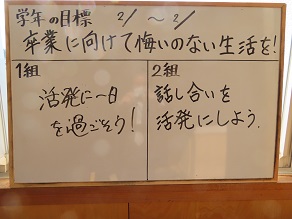 学年の目標 2/ 〜 2/
卒業に向けて悔いのない生活を!
1組
活発に一日
を過ごそう!
2組
話し合いを
活発にしよう.